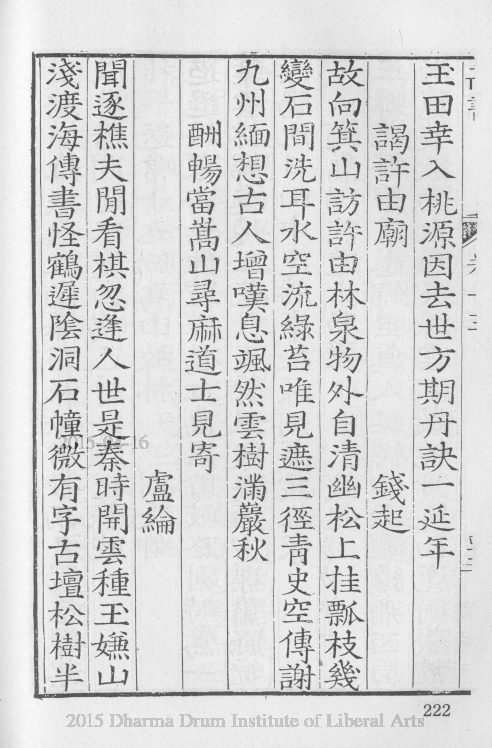 玉田幸入桃源因去世方期丹訣一延年
謁許由廟 錢起
故向箕山訪許由林泉物外自清幽松上挂瓢枝幾
變石間洗耳水空流綠苔唯見遮三徑青史空傳謝
九州緬想古人增嘆息颯然雲樹滿巖秋
酬暢當嵩山尋麻道士見寄
盧綸
聞逐樵夫閒看棋忽逢人世是秦時開雲種玉嫌山
淺渡海傳書怪鶴遲陰洞石幢微有字古壇松樹半
222
2015 Dharma Drum Institute of Liberal Arts